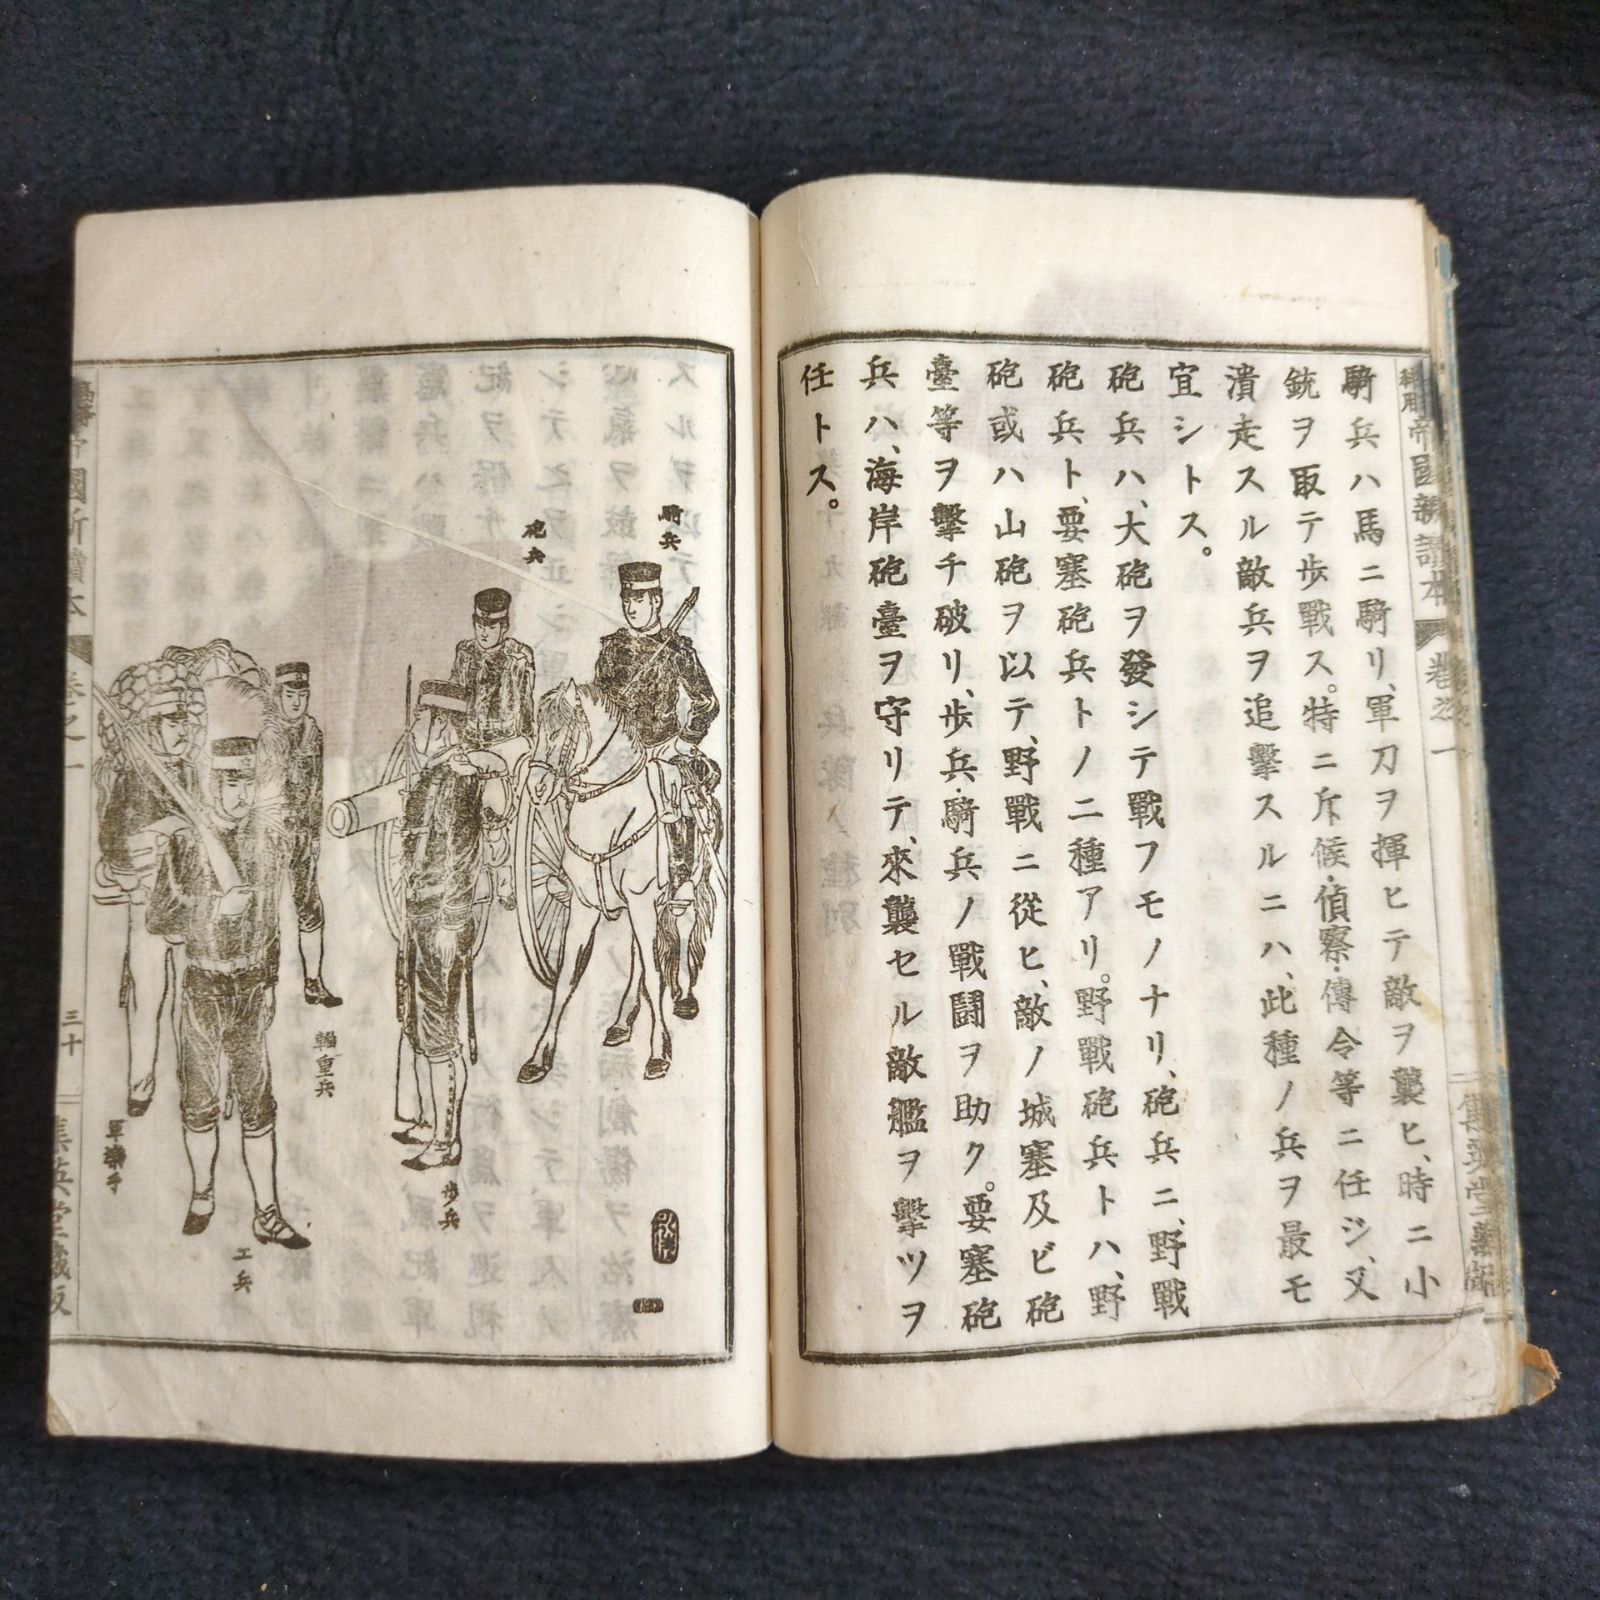 帝國新讀本
卷之一
騎兵ハ馬ニ騎リ、軍刀ヲ揮ヒテ敵ヲ襲ヒ、時ニ小
銃ヲ取テ歩戰ス。特ニ斥候・偵察・傳令等ニ任ジ、又
潰走スル敵兵ヲ追擊スルニハ、此種ノ兵ヲ最モ
宜シトス。
砲兵ハ、大砲ヲ發シテ戰フモノナリ、砲兵ニ、野戰
砲兵ト、要塞砲兵トノ二種アリ。野戰砲兵トハ、野
砲或ハ山砲ヲ以テ、野戰ニ從ヒ、敵ノ城塞及ビ砲
臺等ヲ擊チ破リ、歩兵・騎兵ノ戰鬪ヲ助ク。要塞砲
兵ハ、海岸砲臺ヲ守リテ、來襲セル敵艦ヲ擊ツヲ
任トス。
騎兵
砲兵
歩兵
輜重兵
工兵
軍樂手
帝國新讀本
卷之一
三十
集英堂藏版